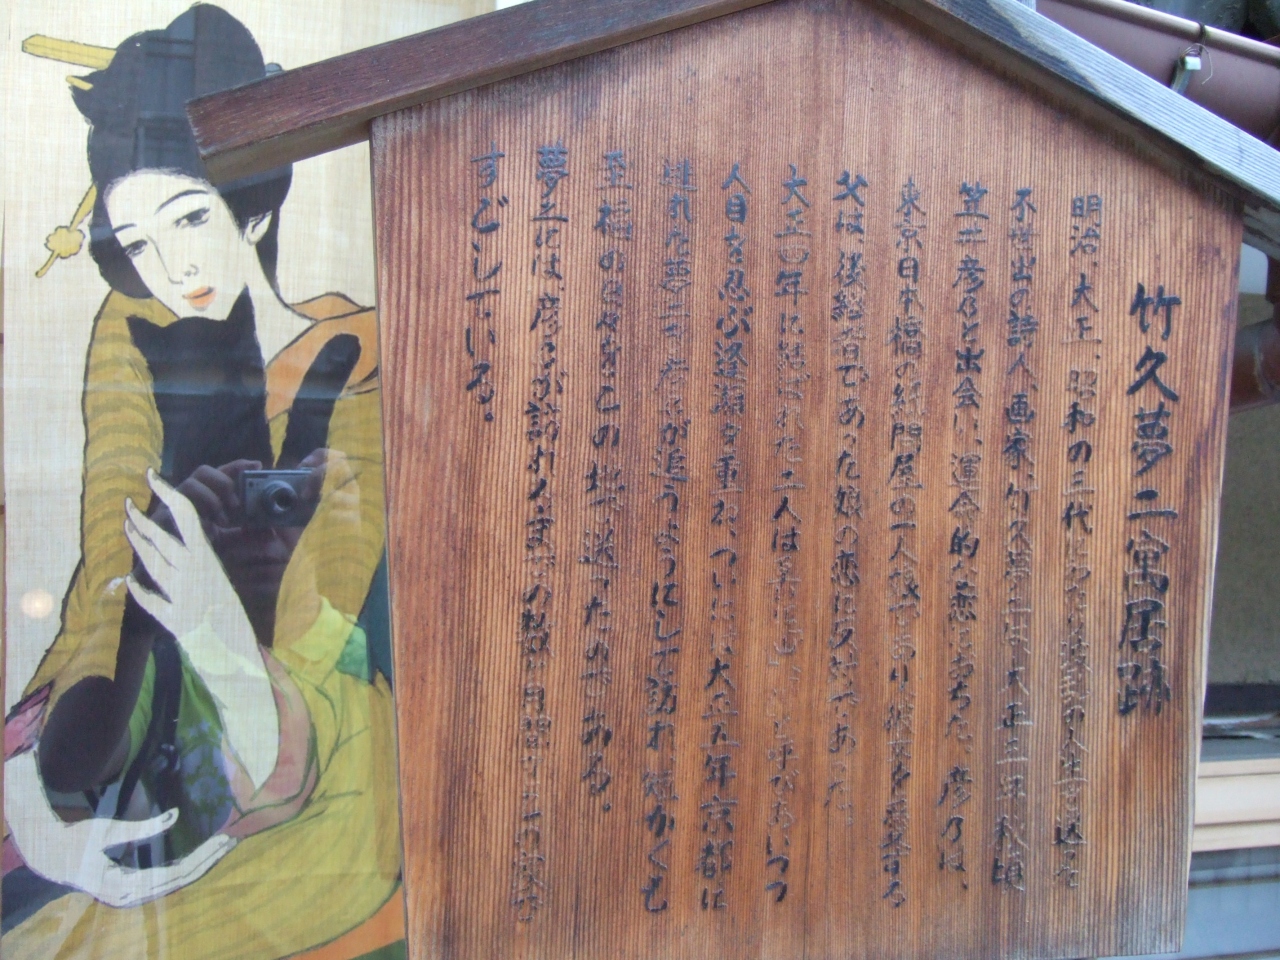 竹久夢二寓居跡
明治、大正、昭和の三代にわたり波乱の人生を送った
不世出の詩人、画家、竹久夢二は、大正三年秋頃
笠井彦乃と出会い、運命的な恋におちた。彦乃は、
東京日本橋の紙問屋の一人娘であり
父は、後継者であった娘の恋に
大正四年に結ばれた二人は 呼びあいつつ
人目を忍ぶ逢瀬を重ね、ついには大正五年京都に
逃れた夢二を彦乃が追うようにして訪れ短かくも
至福のときをこの地で送ったのである。
夢二は、彦乃が訪れるまでの数か月間を
すごしている。